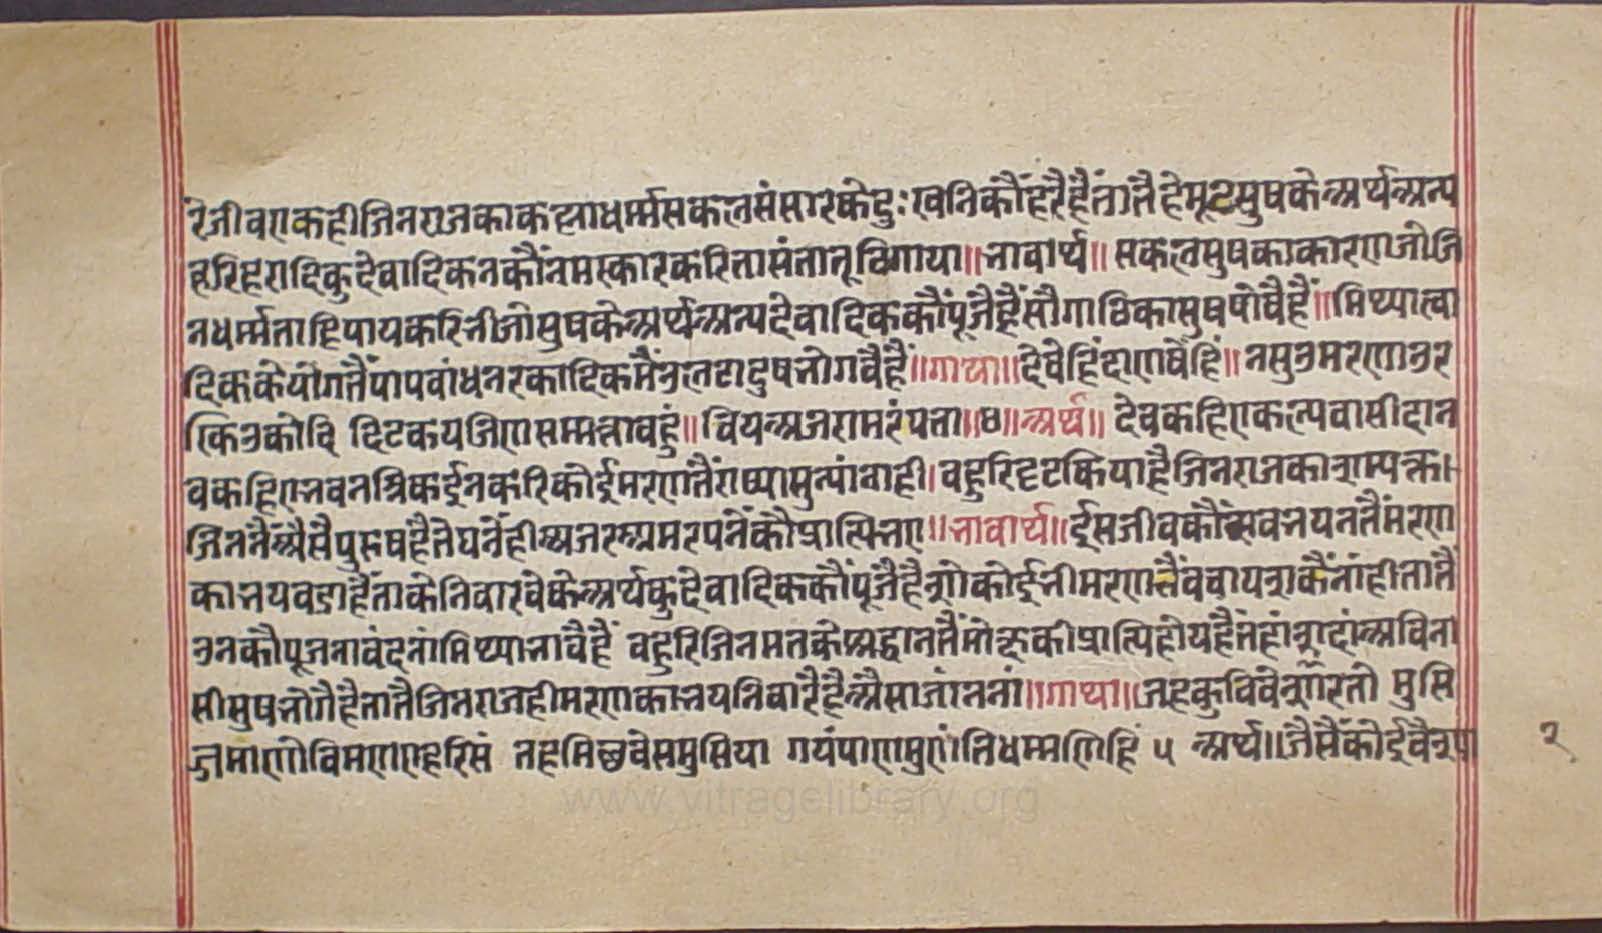 रेजीवएकहीजिनराजकाकह्याधर्म्मसकलसंसारकेदुःखनिकौंहरैहैंतातैहेमूढसुषकेअर्थअन्य
हरिहरादिकुदेवादिकनकौंनमस्कारकरितासंतातूठिगाया॥भावार्थ॥सकलसुषकाकारणजोजि
नधर्म्मताहिपायकरिभीजोसुषकेअर्थअन्यदेवादिककौंपूजैहैंसौगांठिकासुषषोवैहैं॥मिथ्यात्वा
दिककेयोगतैंपापबांधनरकादिकमैंउलटादुषभोगवैहैं॥गाथा॥देवेहिंदाणवेहिं॥नसुउमरणाउर
खिउकोवि दिढकयजिणसम्मत्तावहुं॥वियअजरामरंपत्ता॥४॥अर्थ॥ देवकहिएकल्पवासीदान
वकहिएभवनत्रिकईनकरिकोईमरणतैंराष्यासुन्यांनाही।बहुरिदृढकियाहैजिनराजकासम्यक्त।
जिननैंअैसैपुरुषहैतेघनेंहीअजरअमरपनेंकौप्राप्तिभए॥भावार्थ॥ईसजीवकौंसवभयनतैंमरण
काभयबडाहैंताकेनिवारवेकेअर्थकुदेवादिककौंपूजैहैसोकोईभीमरणतैंबचायसकैंनांहीतातैं
उनकौपूजनावंदनांमिथ्याभावैहैं बहुरिजिनमतकेश्रद्धानतैंमोक्षकीप्राप्तिहोयहैंतहांसदांअविना
सीसुषभोगैहैतातैजिनराजहीमरणकाभयनिवारैहैअैसाजांननां॥गाथा॥जहकुविवेसारतो मुसि
जमाणोविमणएहरिसं तहमिछवेसमुसिया गयंपाणमुणंतिधम्मणिहिं ५ अर्थ॥जैसैंकोईवैश्या
२
www.vitragelibrary.org